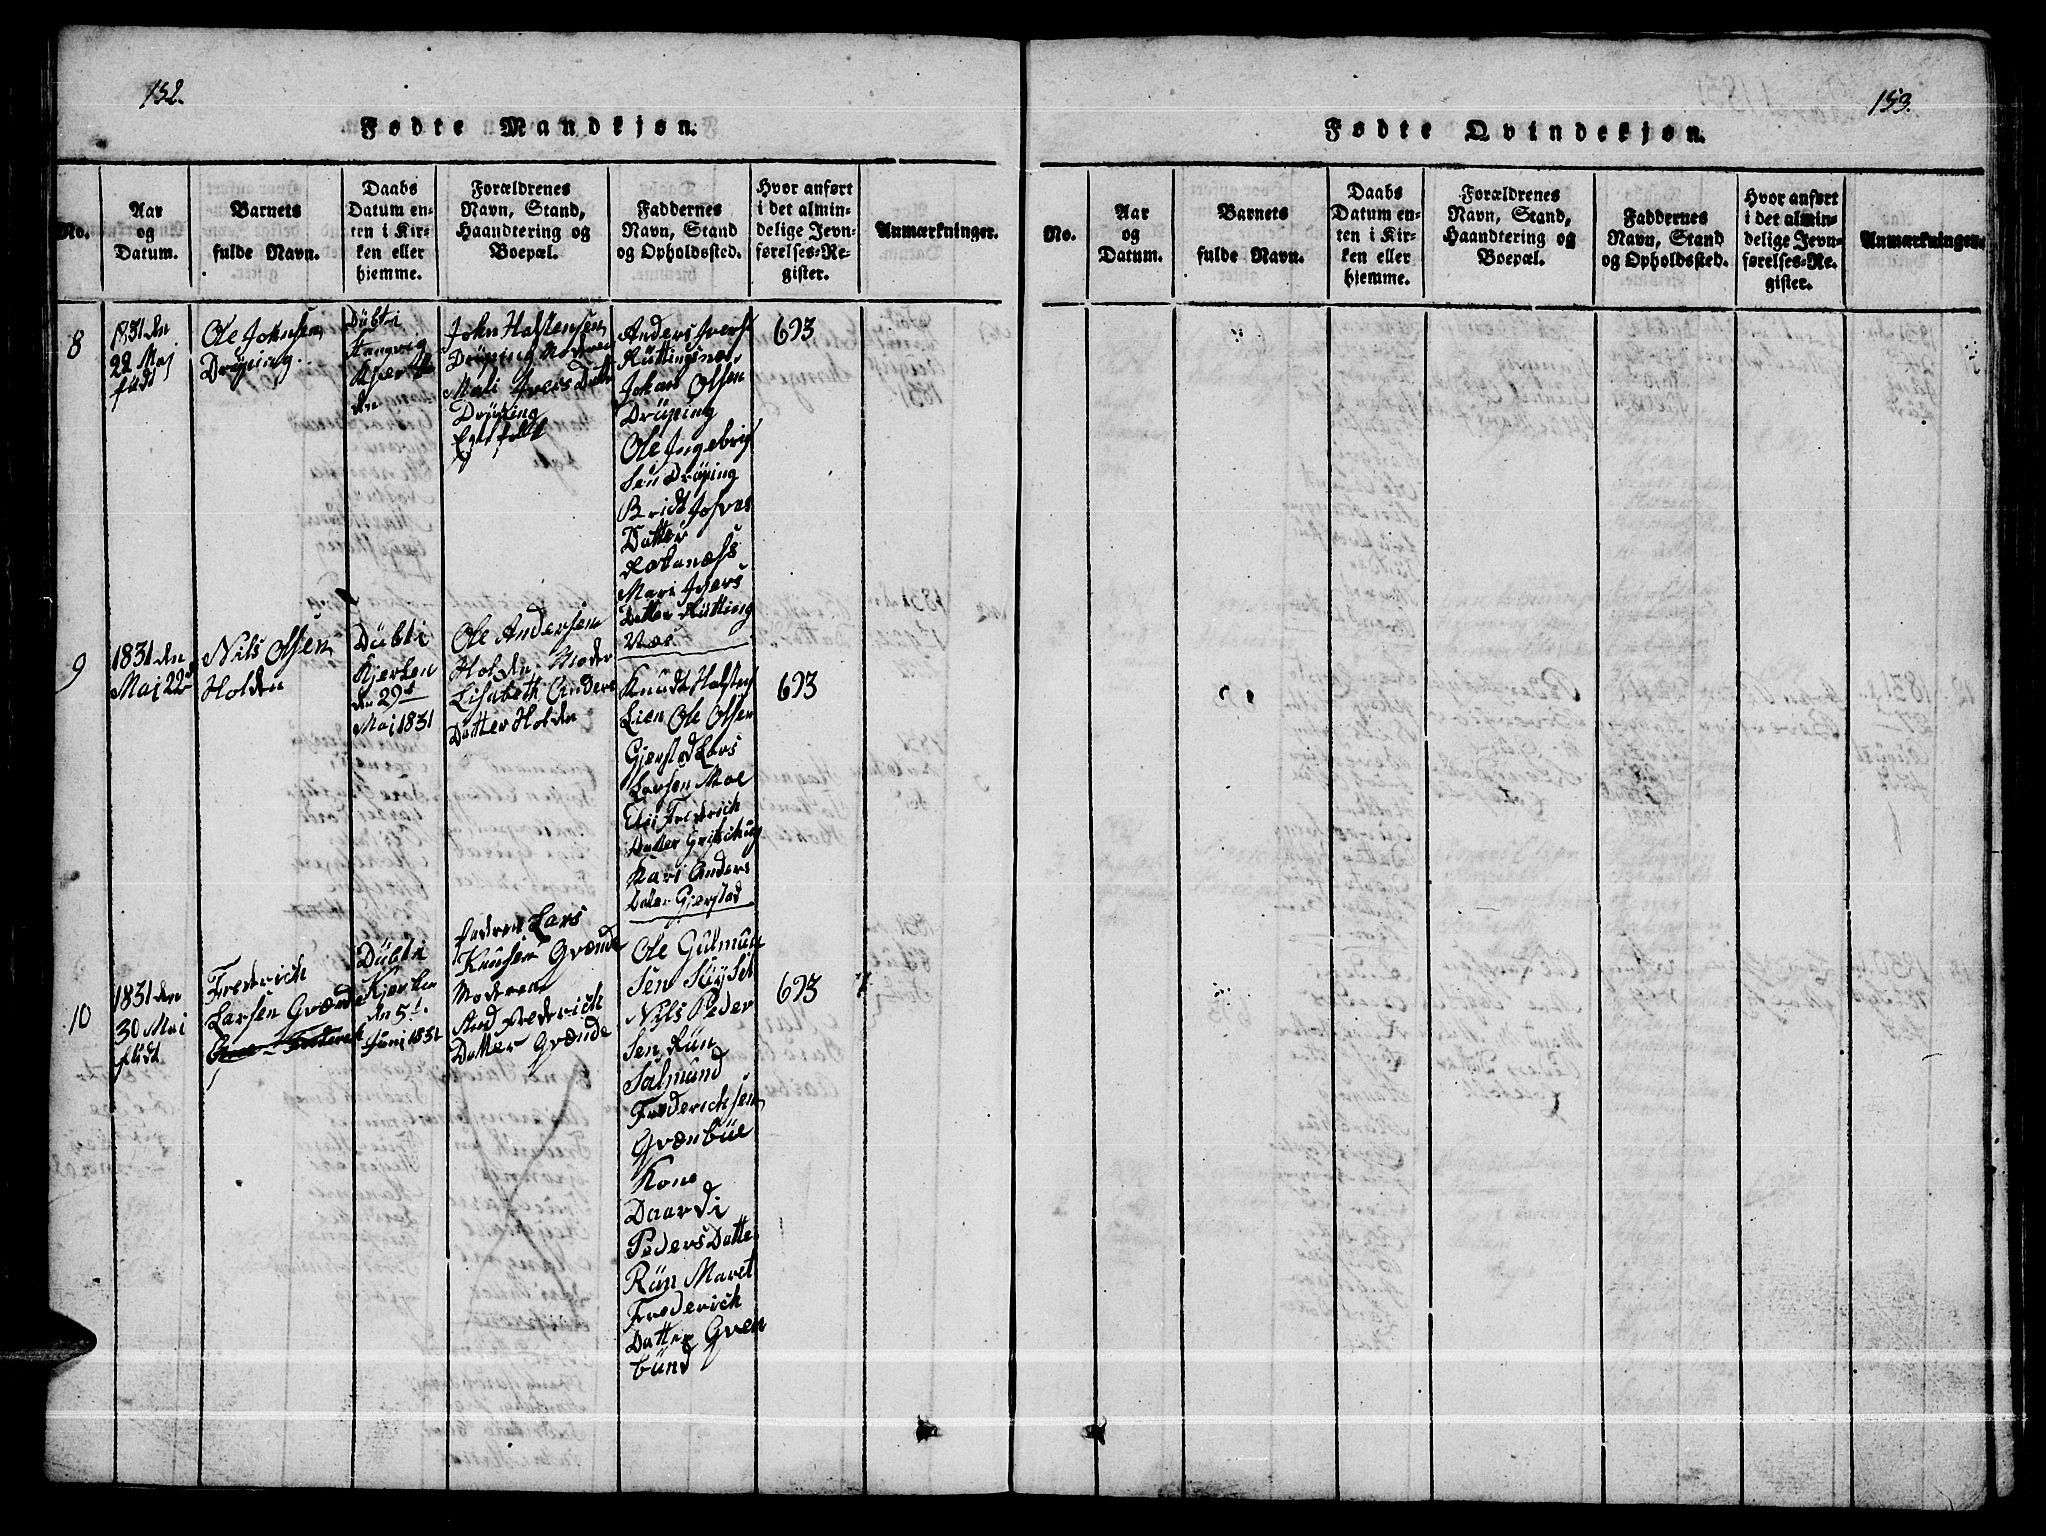 152.
Fødte Mandkjøn.
No.
Aar
og
Datum.
Barnets
fulde Navn.
Daabs
Datum en-
ten i Kir-
ken eller
hjemme.
Forældrenes
Navn, Stand,
Haandtering og
Boepæl.
Faddernes
Navn, Stand
og Opholdssted.
Hvor anført
i det almin-
delige Jevn-
førelses-Re-
gister.
Anmærkninger.
8
1831 den
22 Maj
füdt
Ole Johnsen
Dröping
Dübti
den
John Halstensen
Dröping Moderen
Mali Ivers Datter
Dröping
Anders Ivers
Johan Olsen
Dröping
Ole Ingebrig
sen Dröping
Datter
Mari Ivers
Datter Rütting
Næs
693
9
1831 den
Maj 22
Nils Olsen
Holden
Dübti
Kjerken
den 29
Maj 1831
Ole Andersen
Holden Moder
Lisabeth Anders
Datter Holden
Knudt Halsten
Lien Ole Olsen
Gjerstad Lars
Larsen Moe
Frederich
Datter
Kari Anders
Dater Gjerstad
693
10
1831 den
30 Mai
füdt
Frederich
Larsen Grænde
Dübti
Kjerken
den 5
Juni 1831
faderen Lars
Knusen Grænde
Moderen
And Frederich
Datter Grænde
Ole Gulmun
sen
Nyls Peder
sen Rün
Salmund
Frederichsen
Grænbüe
Kone
Daardi
Peders Datte
Rün Maret
Frederich
Datter Gren
bünd
693
153.
Fødte Qvindekjøn.
No.
Aar
og
Datum.
Barnets
fulde Navn.
Daabs
Datum en-
ten i Kir-
ken eller
hjemme.
Forældrenes
Navn, Stand,
Haandtering og
Boepæl.
Faddernes
Navn, Stand
og Opholdssted.
Hvor anført
i det almin-
delige Jevn-
førelses-Re-
gister.
Anmærkninger.